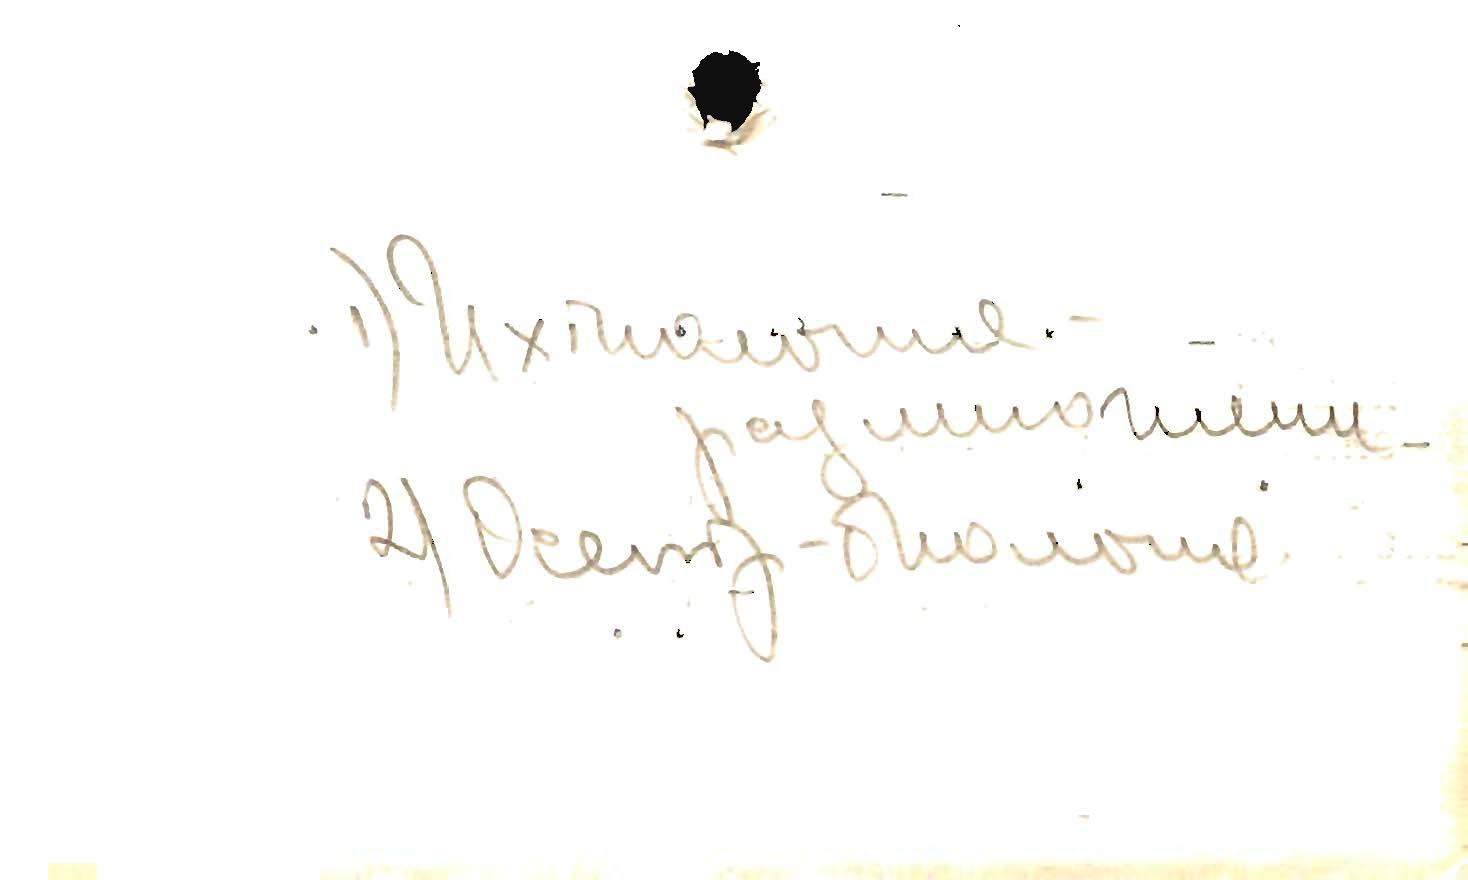 1) Ихтиология -
размножени-
2) Осетр - биология